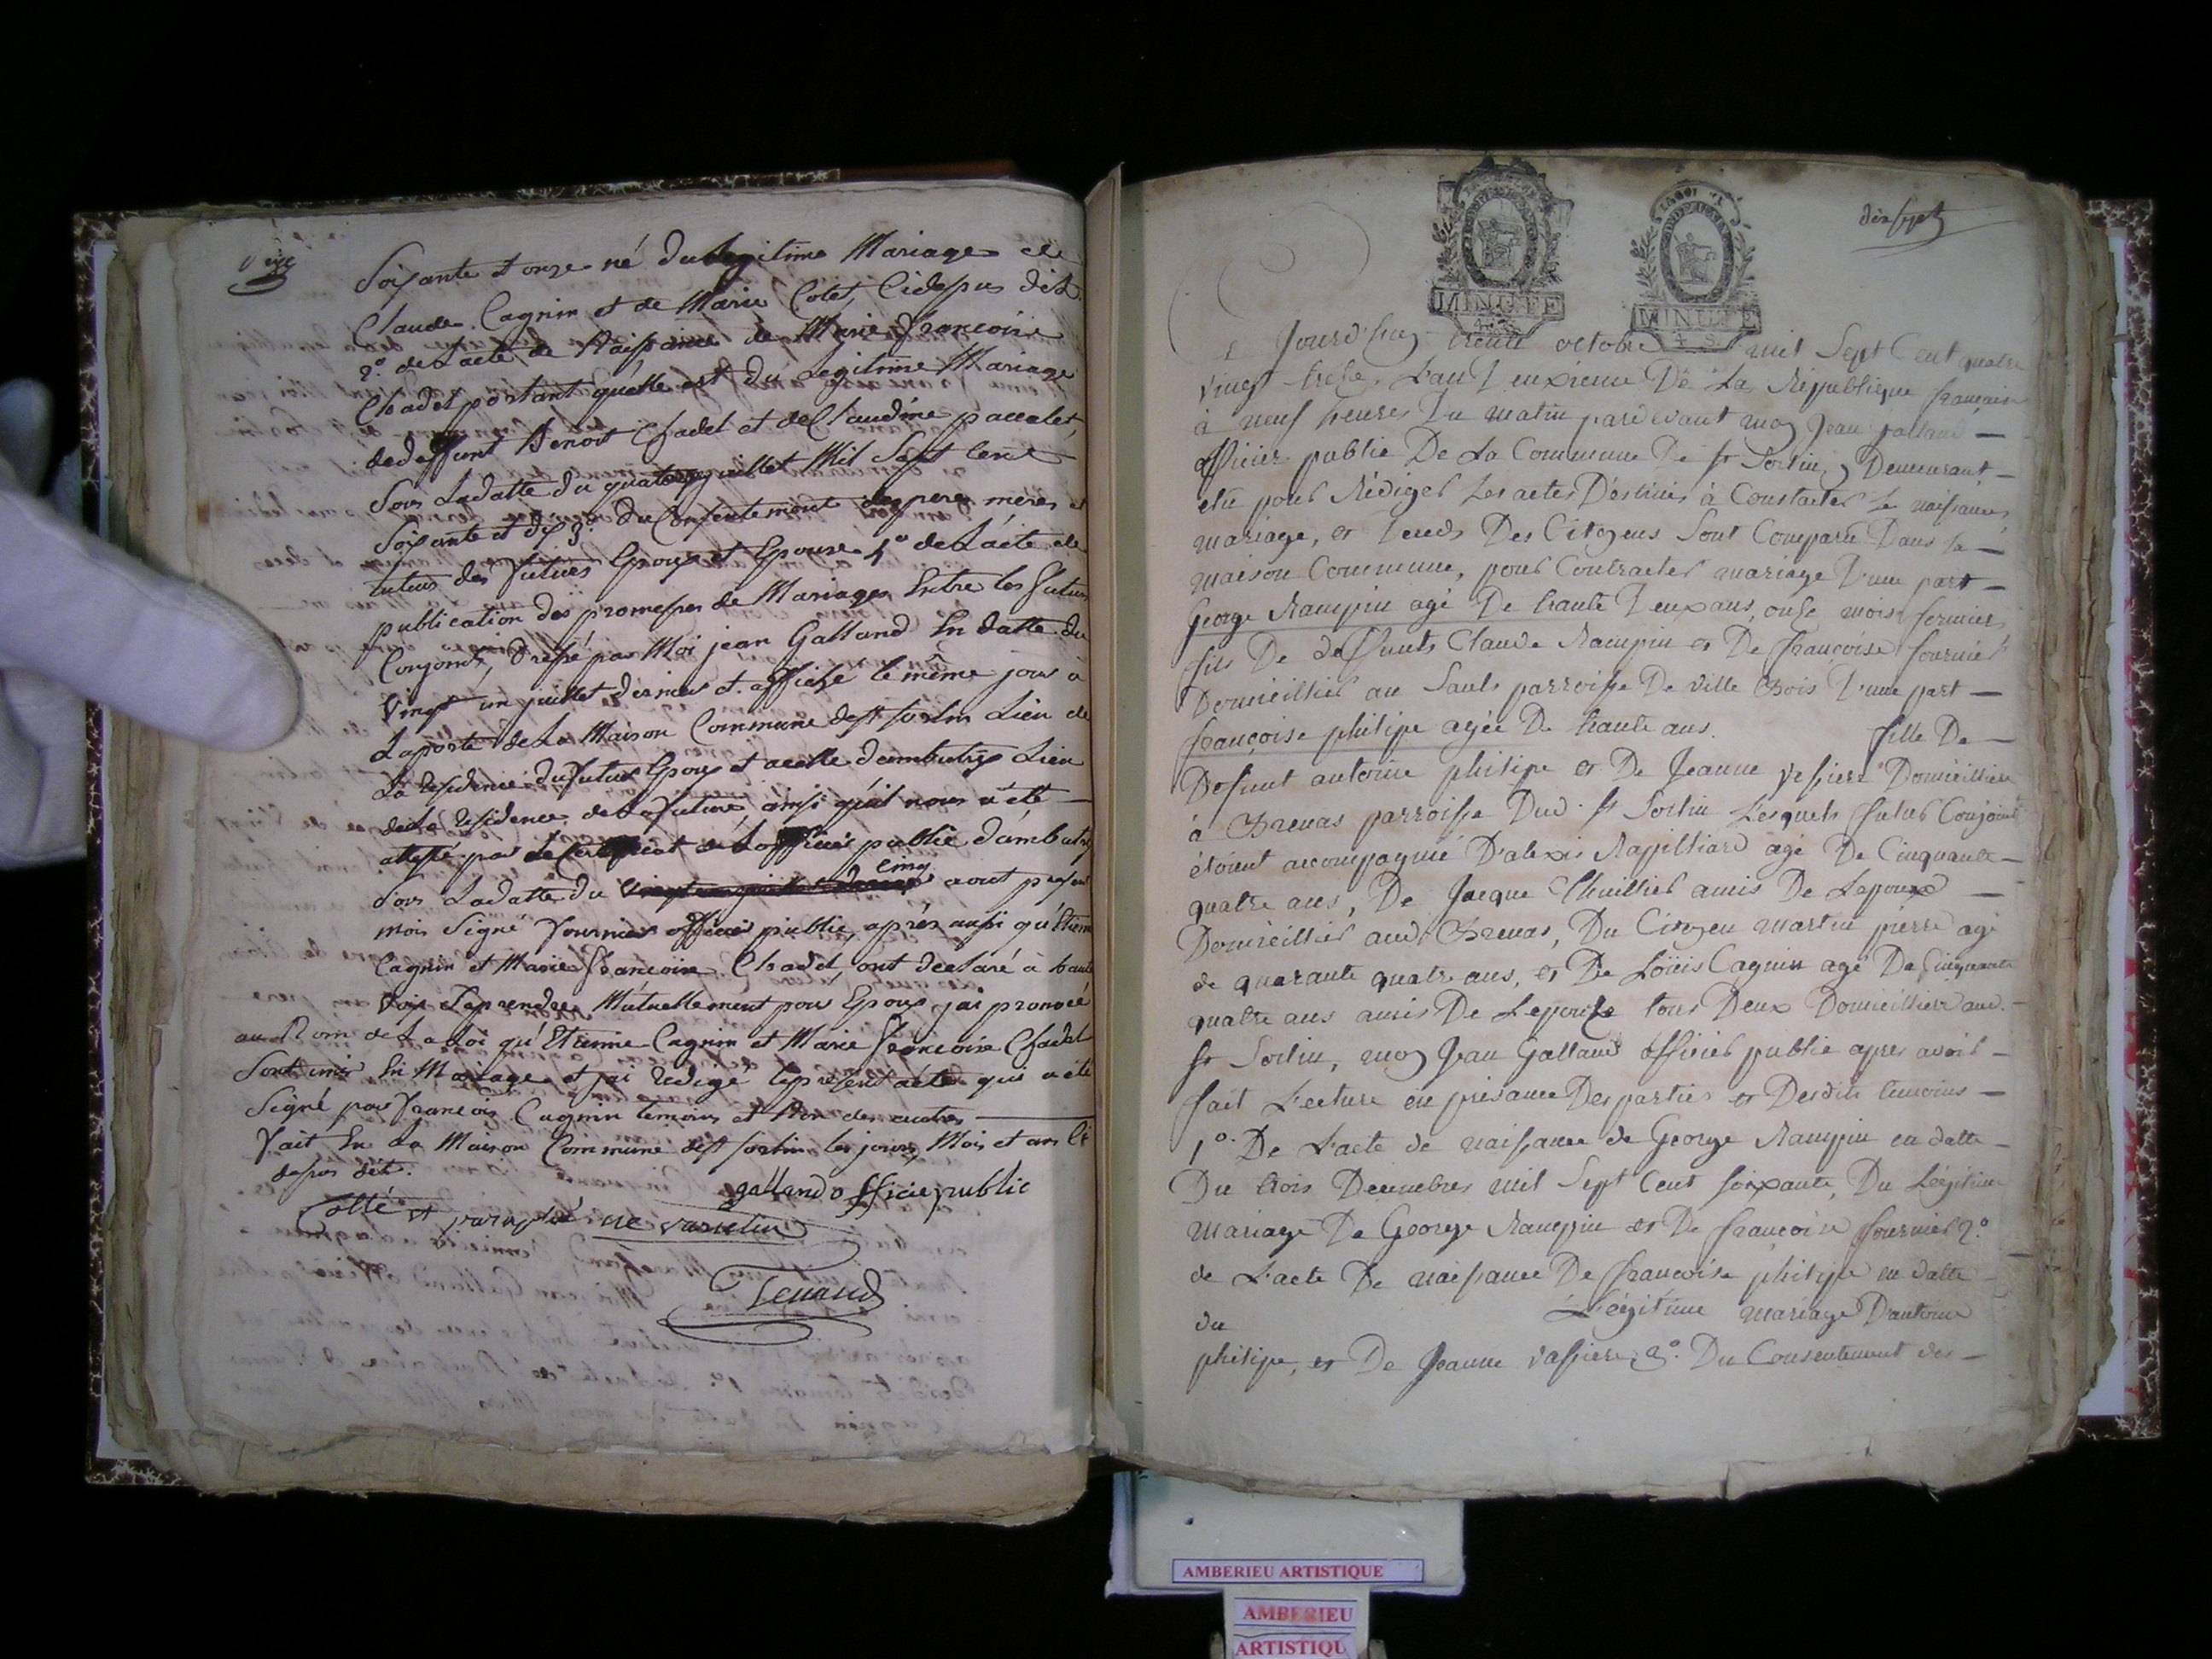 Soixante et onze né du Legitime Mariage de
Claude Cagnin et de Marie Cotet, Cidepus dit
2° de Lacte de Naissance de Marie françoise
Chadel portant quelle est du Legitime Mariage
dedeffunt Benoit Chadel et de Claudine paccalet,
Sous Ladatte du quatorze juillet Mil Sept Cent
Soixante et dix 3° du Consentement des peres meres et
tuteurs des futurs Epoux et Epouse 4° de Lacte de
publication des promesses de Mariages Entre les futurs
Conjoints, dressé par Moi jean Galland En datte du
Vingt un juillet dernier et affiché le même jour à
Laporte de La Maison Commune de st Sorlin Lieu de
La Residence du futur Epoux et a celle d'ambutrix Lieu
de La Residence de La future, ainsi qu'il nous a été
attesté par Le Certificat de Lofficier public d'ambutrix
cinq
Sous Ladatte du aout present
mois Signé fournier officier public, après aussi qu'Etienne
Cagnin et Marie françoise Chadel, ont declaré à haute
Voix Seprendre Mutuellement pour Epoux, jai prononcé
au Nom de La Loi qu'Etienne Cagnin et Marie françoise Chadel
Sont unis En Mariage et jai Redigé leprésent acte qui a été
Signé par françois Cagnin temoins et Non des autres
fait En La Maison Commune de st sorlin les jours, Mois et an Ci
depus dit.
galland officier public
Collé et paraphé ne varietur
Tenand
dix sept
MINUTE
4. S.
MINUTE
4. S.
Jourd'huy trente octobre mil Sept Cent quatre
vingt treize, L'an Deuxieme De La République françaises
à neuf heures Du matin pardevant moy Jean galland
officier public De La Commune De st Sorlin y Demeurant
élu pour Rédiger Les actes Destinés à Constater Le naissances,
mariage, et Deceds Des Citoyens Sont Comparu Dans la
maison Commune, pour Contracter mariage D'une part
George Rampin agé De trante Deux ans, onse mois fermier,
fils De deffunts Claude Rampin et De françoise fournier
Domicillier au Sault parroisse De ville Bois D'une part
françoise philipe agée De trante ans. fille De
Defunt antoine philipe et De Jeanne Domicilliere
à Brenas parroisse Dud. st Sorlin Lesquels futur Conjoint
étoient accompagnié D'alexis Rapilliard agé De Cinquante
quatre ans, De Jacque Thuillier amis De Lepoux
Domicillier aud. Brenas, Du Citoyen martin pierre agé
de quarante quatre ans, et De Loüis Cagnin agé De Cinquante
quatre ans amis De Lepouse tous Deux Domicillier aud.
st Sorlin, moy Jean Galland officier public apres avoir
fait Lecture en présance Des parties et Desdits temoins
1°. De L'acte de naissance de George Rampin en datte
Du trois Decembres mil Sept Cent soixante, Du Légitime
mariage De George Rampin et De françoise fournier 2°
de L'acte De naissance De françoise philipe en datte
du Légitime mariage D'antoine
philipe, et De Jeanne vassiere, 3°. Du Consentement des
AMBERIEU ARTISTIQUE
AMBERIEU
ARTISTIQU